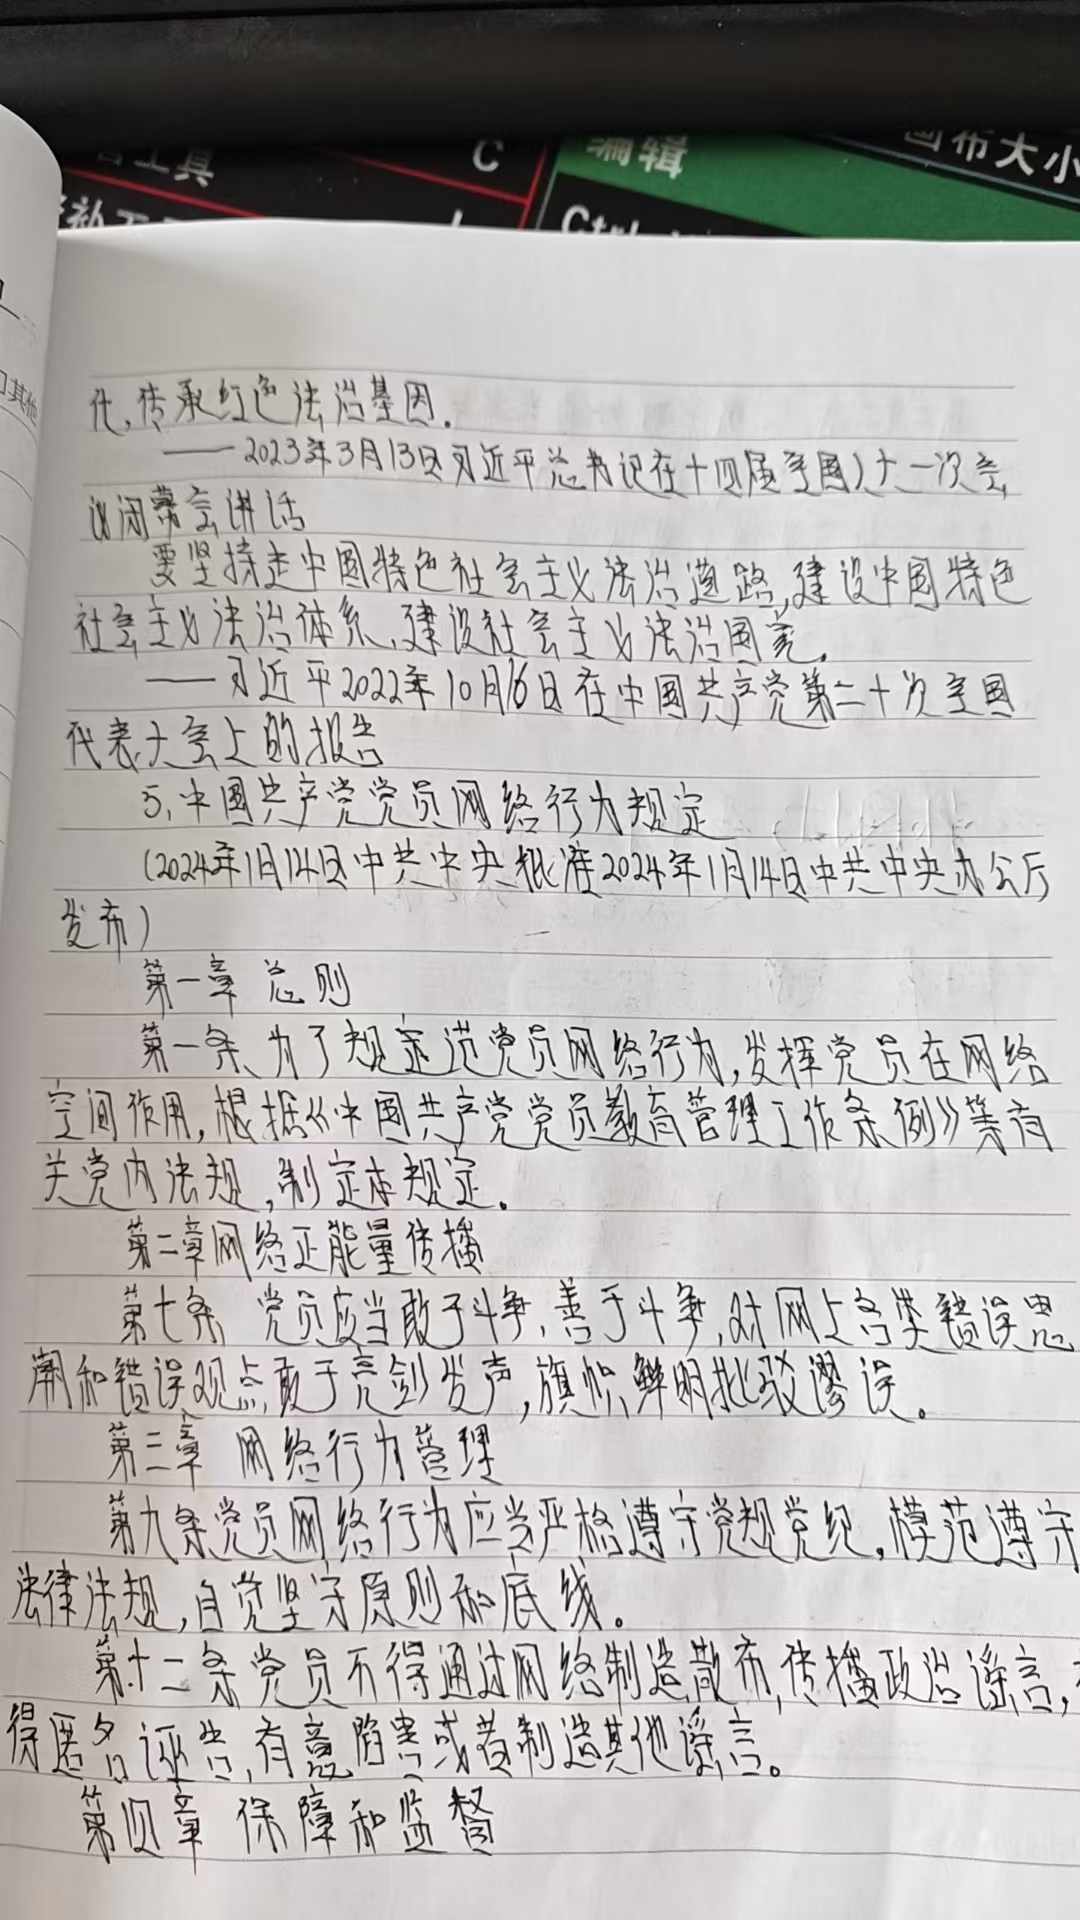 工具
C
编辑
画布大小
Ctrl
其他
代,传承红色法治基因.
——2023年3月13日习近平总书记在十四届全国人大一次会
议闭幕会讲话
要坚持走中国特色社会主义法治道路,建设中国特色
社会主义法治体系,建设社会主义法治国家.
——习近平2022年10月16日在中国共产党第二十次全国
代表大会上的报告
5,中国共产党党员网络行为规定
(2024年1月14日中共中央批准2024年1月14日中共中央办公厅
发布)
第一章 总则
第一条 为了规定范党员网络行为,发挥党员在网络
空间作用,根据《中国共产党党员教育管理工作条例》等有
关党内法规,制定本规定。
第二章网络正能量传播
第七条 党员应当敢于斗争,善于斗争,对网上各类错误思
潮和错误观点敢于亮剑发声,旗帜鲜明批驳谬误。
第三章 网络行为管理
第九条党员网络行为应当严格遵守党规党纪,模范遵守
法律法规,自觉坚守原则和底线。
第十二条党员不得通过网络制造散布,传播政治谣言,
得匿名诬告,有意陷害或者制造其他谣言。
第四章 保障和监督